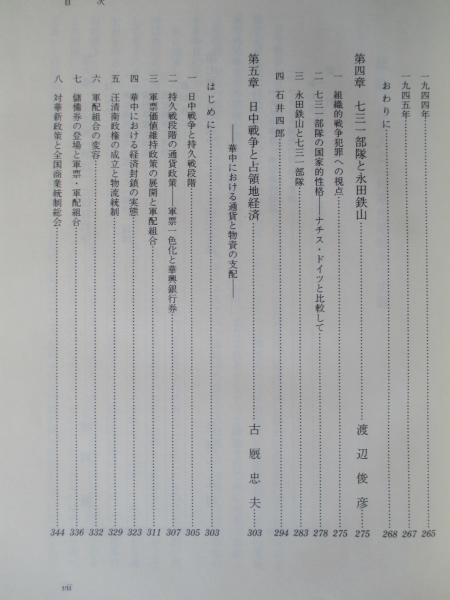 目次
一九四四年 265
一九四五年 267
おわりに 268
第四章 七三一部隊と永田鉄山 渡辺俊彦 275
一 組織的戦争犯罪への視点 275
二 七三一部隊の国家的性格――ナチス・ドイツと比較して 278
三 永田鉄山と七三一部隊 283
四 石井四郎 294
第五章 日中戦争と占領地経済 古厩忠夫 303
――華中における通貨と物資の支配――
はじめに 303
一 日中戦争と持久戦段階 305
二 持久戦段階の通貨政策 軍票一色化と華興銀行券 307
三 軍票価値維持政策の展開と軍配組合 311
四 華中における経済封鎖の実態 323
五 汪清衛政権の成立と物流統制 329
六 軍配組合の変容 332
七 儲備券の登場と軍票・軍配組合 336
八 対華新政策と全国商業統制総会 344
vii